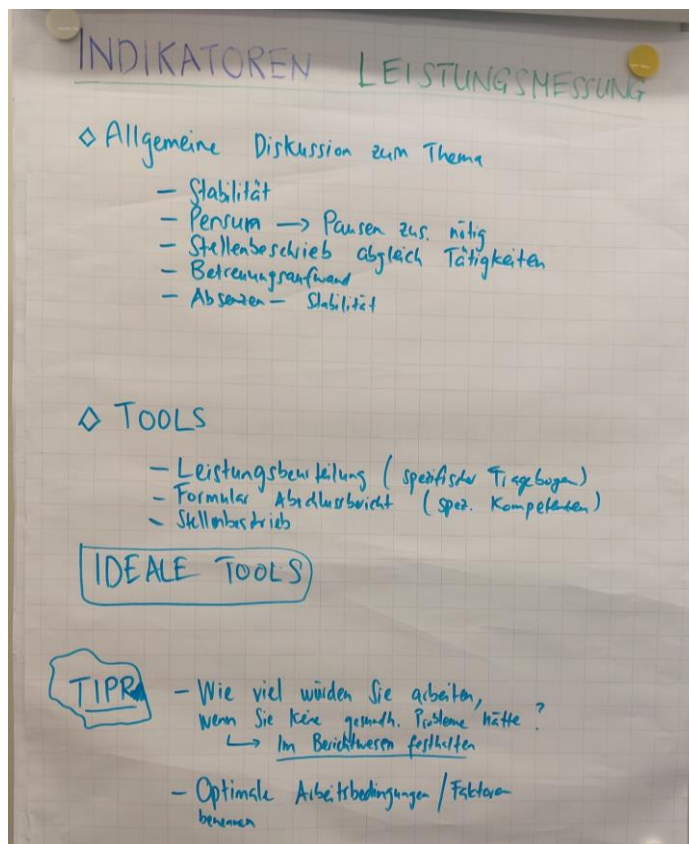 INDIKATOREN LEISTUNGSMESSUNG
◇ Allgemeine Diskussion zum Thema
- Stabilität
- Pensum → Pausen zus. nötig
- Stellenbeschrieb abgleich Tätigkeiten
- Betreuungsaufwand
- Absenzen - Stabilität
◇ TOOLS
- Leistungsbeurteilung (spezifischer Fragebogen)
- Formular Abschlussbericht (spez. Kompetenzen)
- Stellenbeschrieb
IDEALE TOOLS
- Wie viel würden Sie arbeiten,
wenn Sie keine gesundh. Probleme hätte?
↳ Im Berichtwesen festhalten
- Optimale Arbeitsbedingungen / Faktoren
benennen